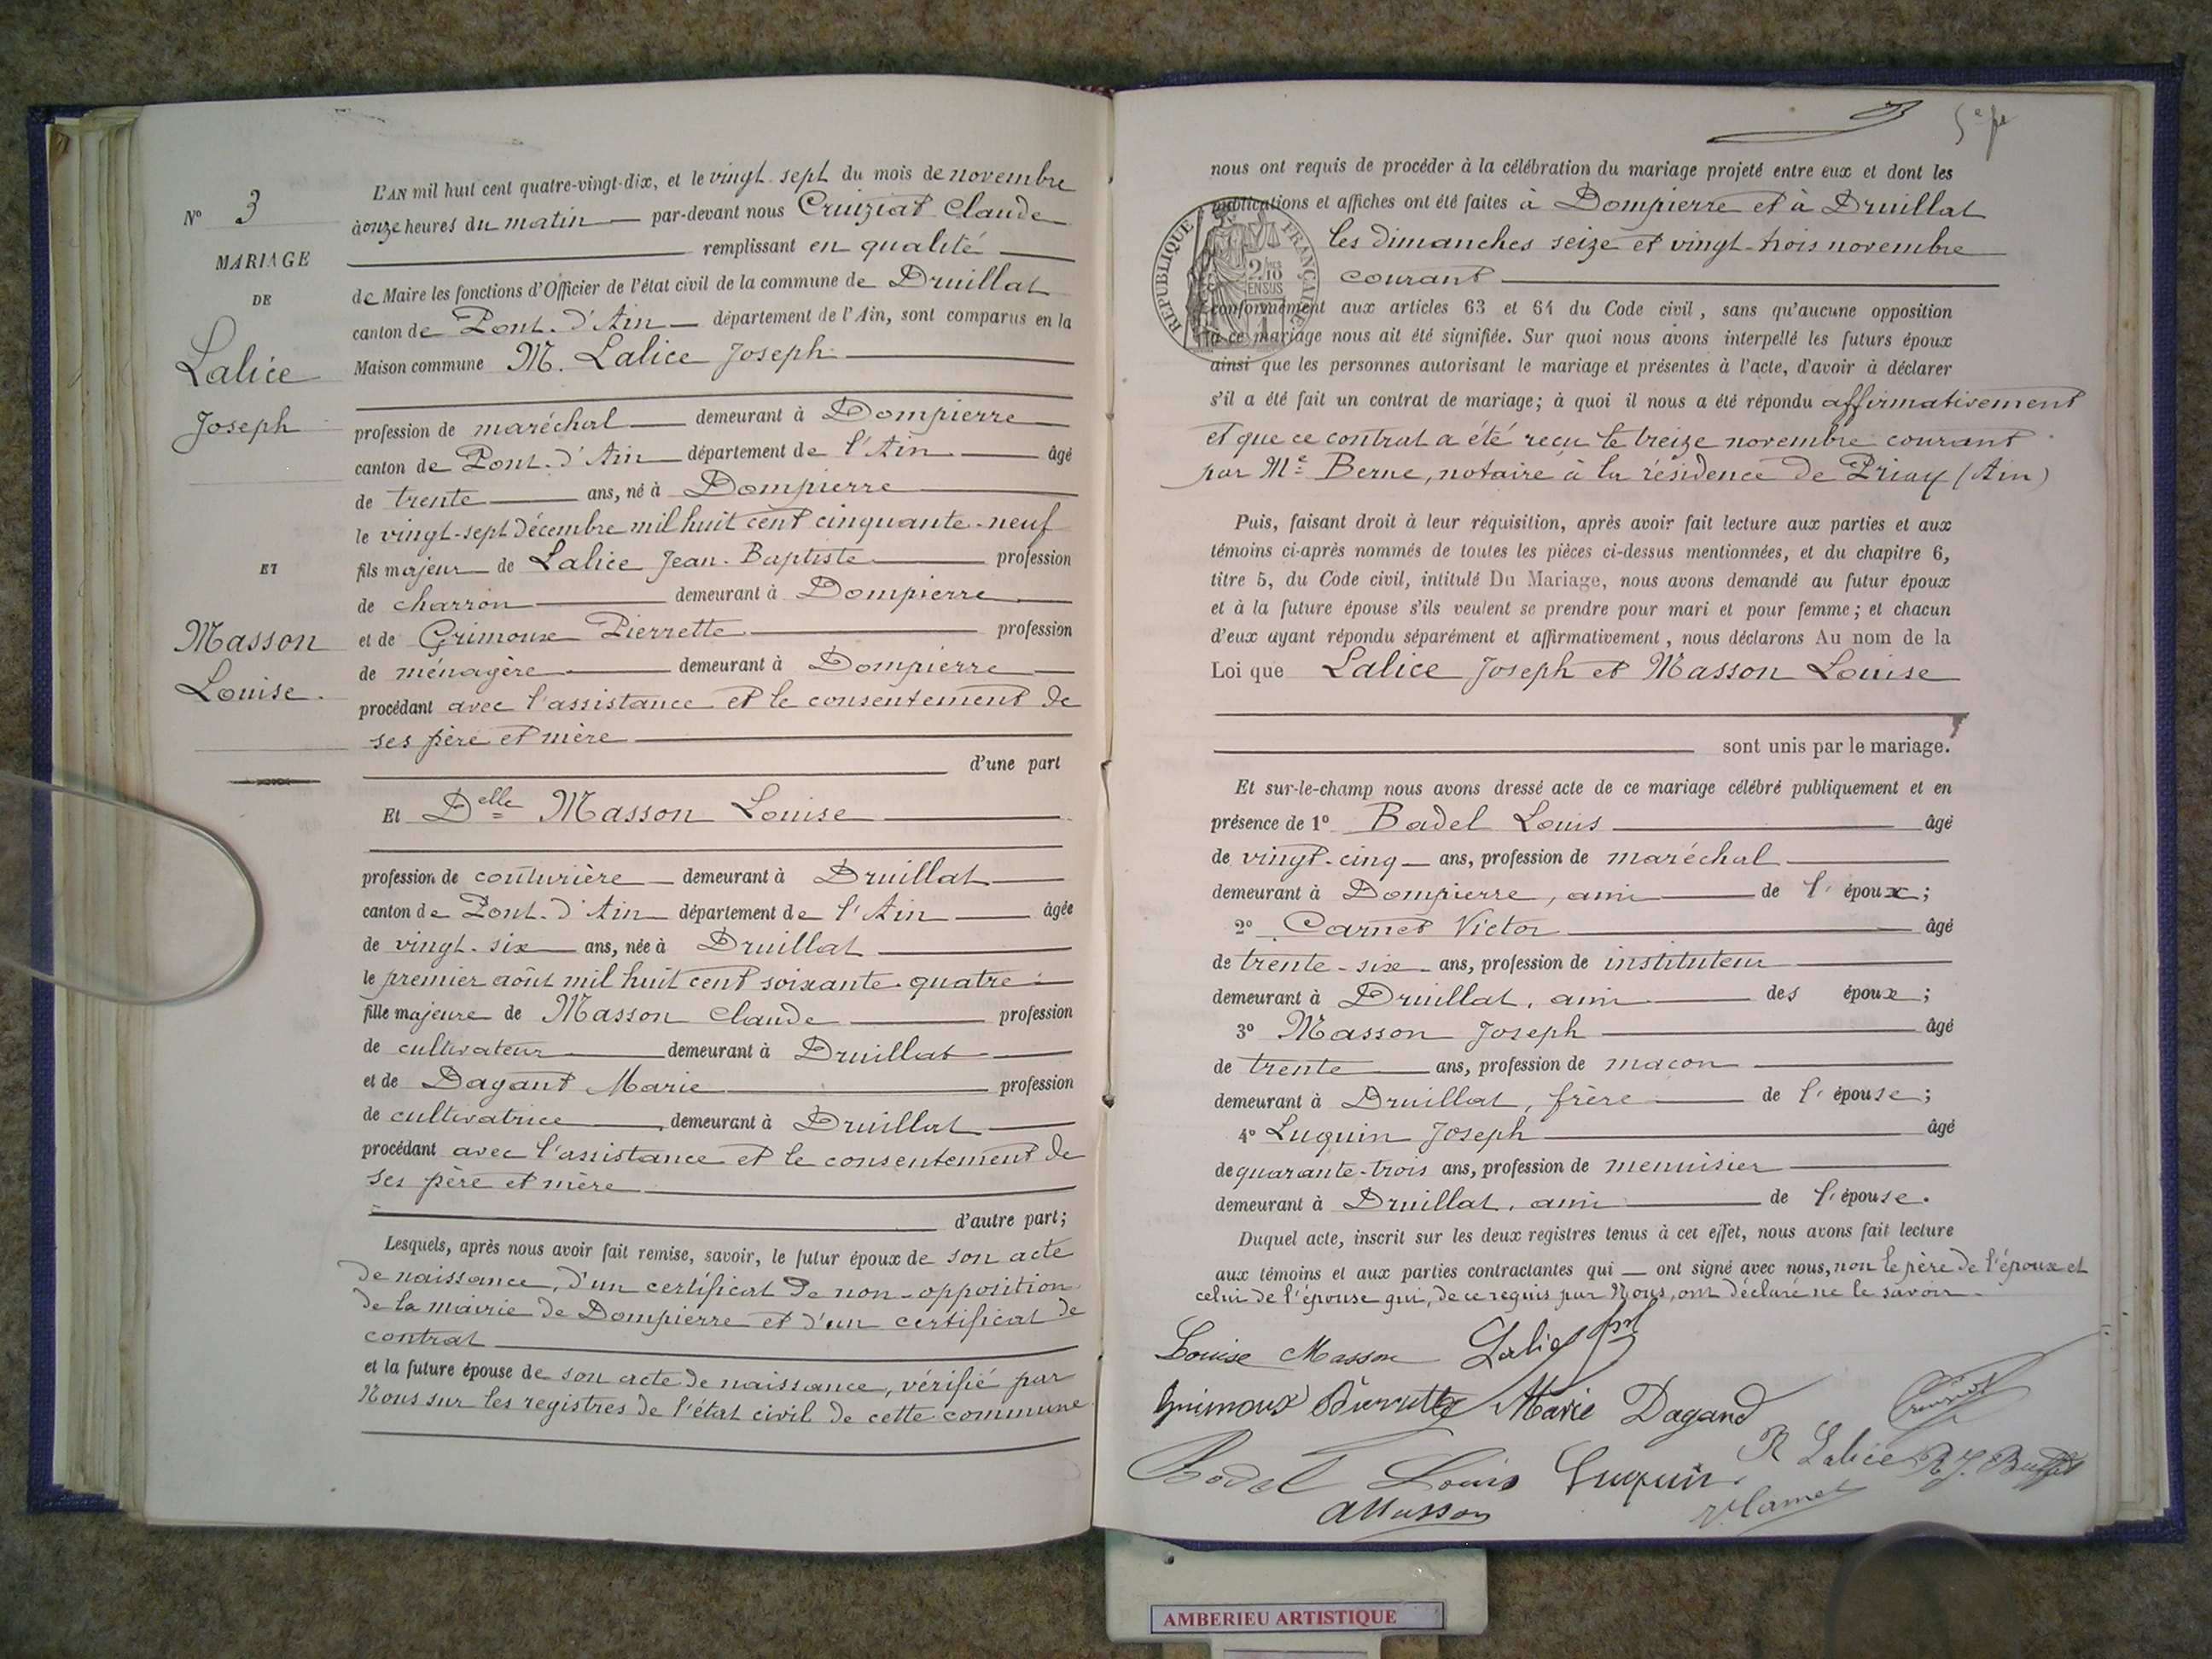 N° 3
MARIAGE
DE
Lalice
Joseph
ET
Masson
Louise.
L'AN mil huit cent quatre-vingt-dix, et le vingt-sept du mois de novembre
à onze heures du matin par-devant nous Cruiziat Claude
remplissant en qualité
de Maire les fonctions d'Officier de l'état civil de la commune de Druillat
canton de Pont-d'Ain département de l'Ain, sont comparus en la
Maison commune M. Lalice Joseph
profession de maréchal demeurant à Dompierre
canton de Pont-d'Ain département de l'Ain âgé
de trente ans, né à Dompierre
le vingt-sept décembre mil huit cent cinquante-neuf
fils majeur de Lalice Jean-Baptiste profession
de charron demeurant à Dompierre
et de Grimoux Pierrette profession
de ménagère demeurant à Dompierre
procédant avec l'assistance et le consentement de
ses père et mère
d'une part
Et Delle Masson Louise
profession de couturière demeurant à Druillat
canton de Pont-d'Ain département de l'Ain âgée
de vingt-six ans, née à Druillat
le premier août mil huit cent soixante-quatre
fille majeure de Masson Claude profession
de cultivateur demeurant à Druillat
et de Dagant Marie profession
de cultivatrice demeurant à Druillat
procédant avec l'assistance et le consentement de
ses père et mère
d'autre part;
Lesquels, après nous avoir fait remise, savoir, le futur époux de son acte
de naissance, d'un certificat de non-opposition
de la mairie de Dompierre et d'un certificat de
contrat
et la future épouse de son acte de naissance, vérifié par
Nous sur les registres de l'état civil de cette commune
nous ont requis de procéder à la célébration du mariage projeté entre eux et dont les
publications et affiches ont été faites à Dompierre et à Druillat
les dimanches seize et vingt-trois novembre
courant
RÉPUBLIQUE FRANÇAISE
2/10 EN SUS
conformément aux articles 63 et 64 du Code civil, sans qu'aucune opposition
à ce mariage nous ait été signifiée. Sur quoi nous avons interpellé les futurs époux
ainsi que les personnes autorisant le mariage et présentes à l'acte, d'avoir à déclarer
s'il a été fait un contrat de mariage; à quoi il nous a été répondu affirmativement
et que ce contrat a été reçu le treize novembre courant
par Me Berne, notaire à la résidence de Priay (Ain)
Puis, faisant droit à leur réquisition, après avoir fait lecture aux parties et aux
témoins ci-après nommés de toutes les pièces ci-dessus mentionnées, et du chapitre 6,
titre 5, du Code civil, intitulé Du Mariage, nous avons demandé au futur époux
et à la future épouse s'ils veulent se prendre pour mari et pour femme; et chacun
d'eux ayant répondu séparément et affirmativement, nous déclarons Au nom de la
Loi que Lalice Joseph et Masson Louise
sont unis par le mariage.
Et sur-le-champ nous avons dressé acte de ce mariage célébré publiquement et en
présence de 1° Badel Louis âgé
de vingt-cinq ans, profession de maréchal
demeurant à Dompierre, ami de l'époux;
2° Carnet Victor âgé
de trente-six ans, profession de instituteur
demeurant à Druillat, ami des époux;
3° Masson Joseph âgé
de trente ans, profession de macon
demeurant à Druillat, frère de l'épouse;
4° Luquin Joseph âgé
de quarante-trois ans, profession de menuisier
demeurant à Druillat, ami de l'épouse.
Duquel acte, inscrit sur les deux registres tenus à cet effet, nous avons fait lecture
aux témoins et aux parties contractantes qui ont signé avec nous, non le père de l'époux et
celui de l'épouse qui, de ce requis par Nous, ont déclaré ne le savoir.
Louise Masson Lalice
Grimoux Pierrette Marie Dagand
Badel Louis Luquin R Lalice
Masson V. Carnet
AMBERIEU ARTISTIQUE